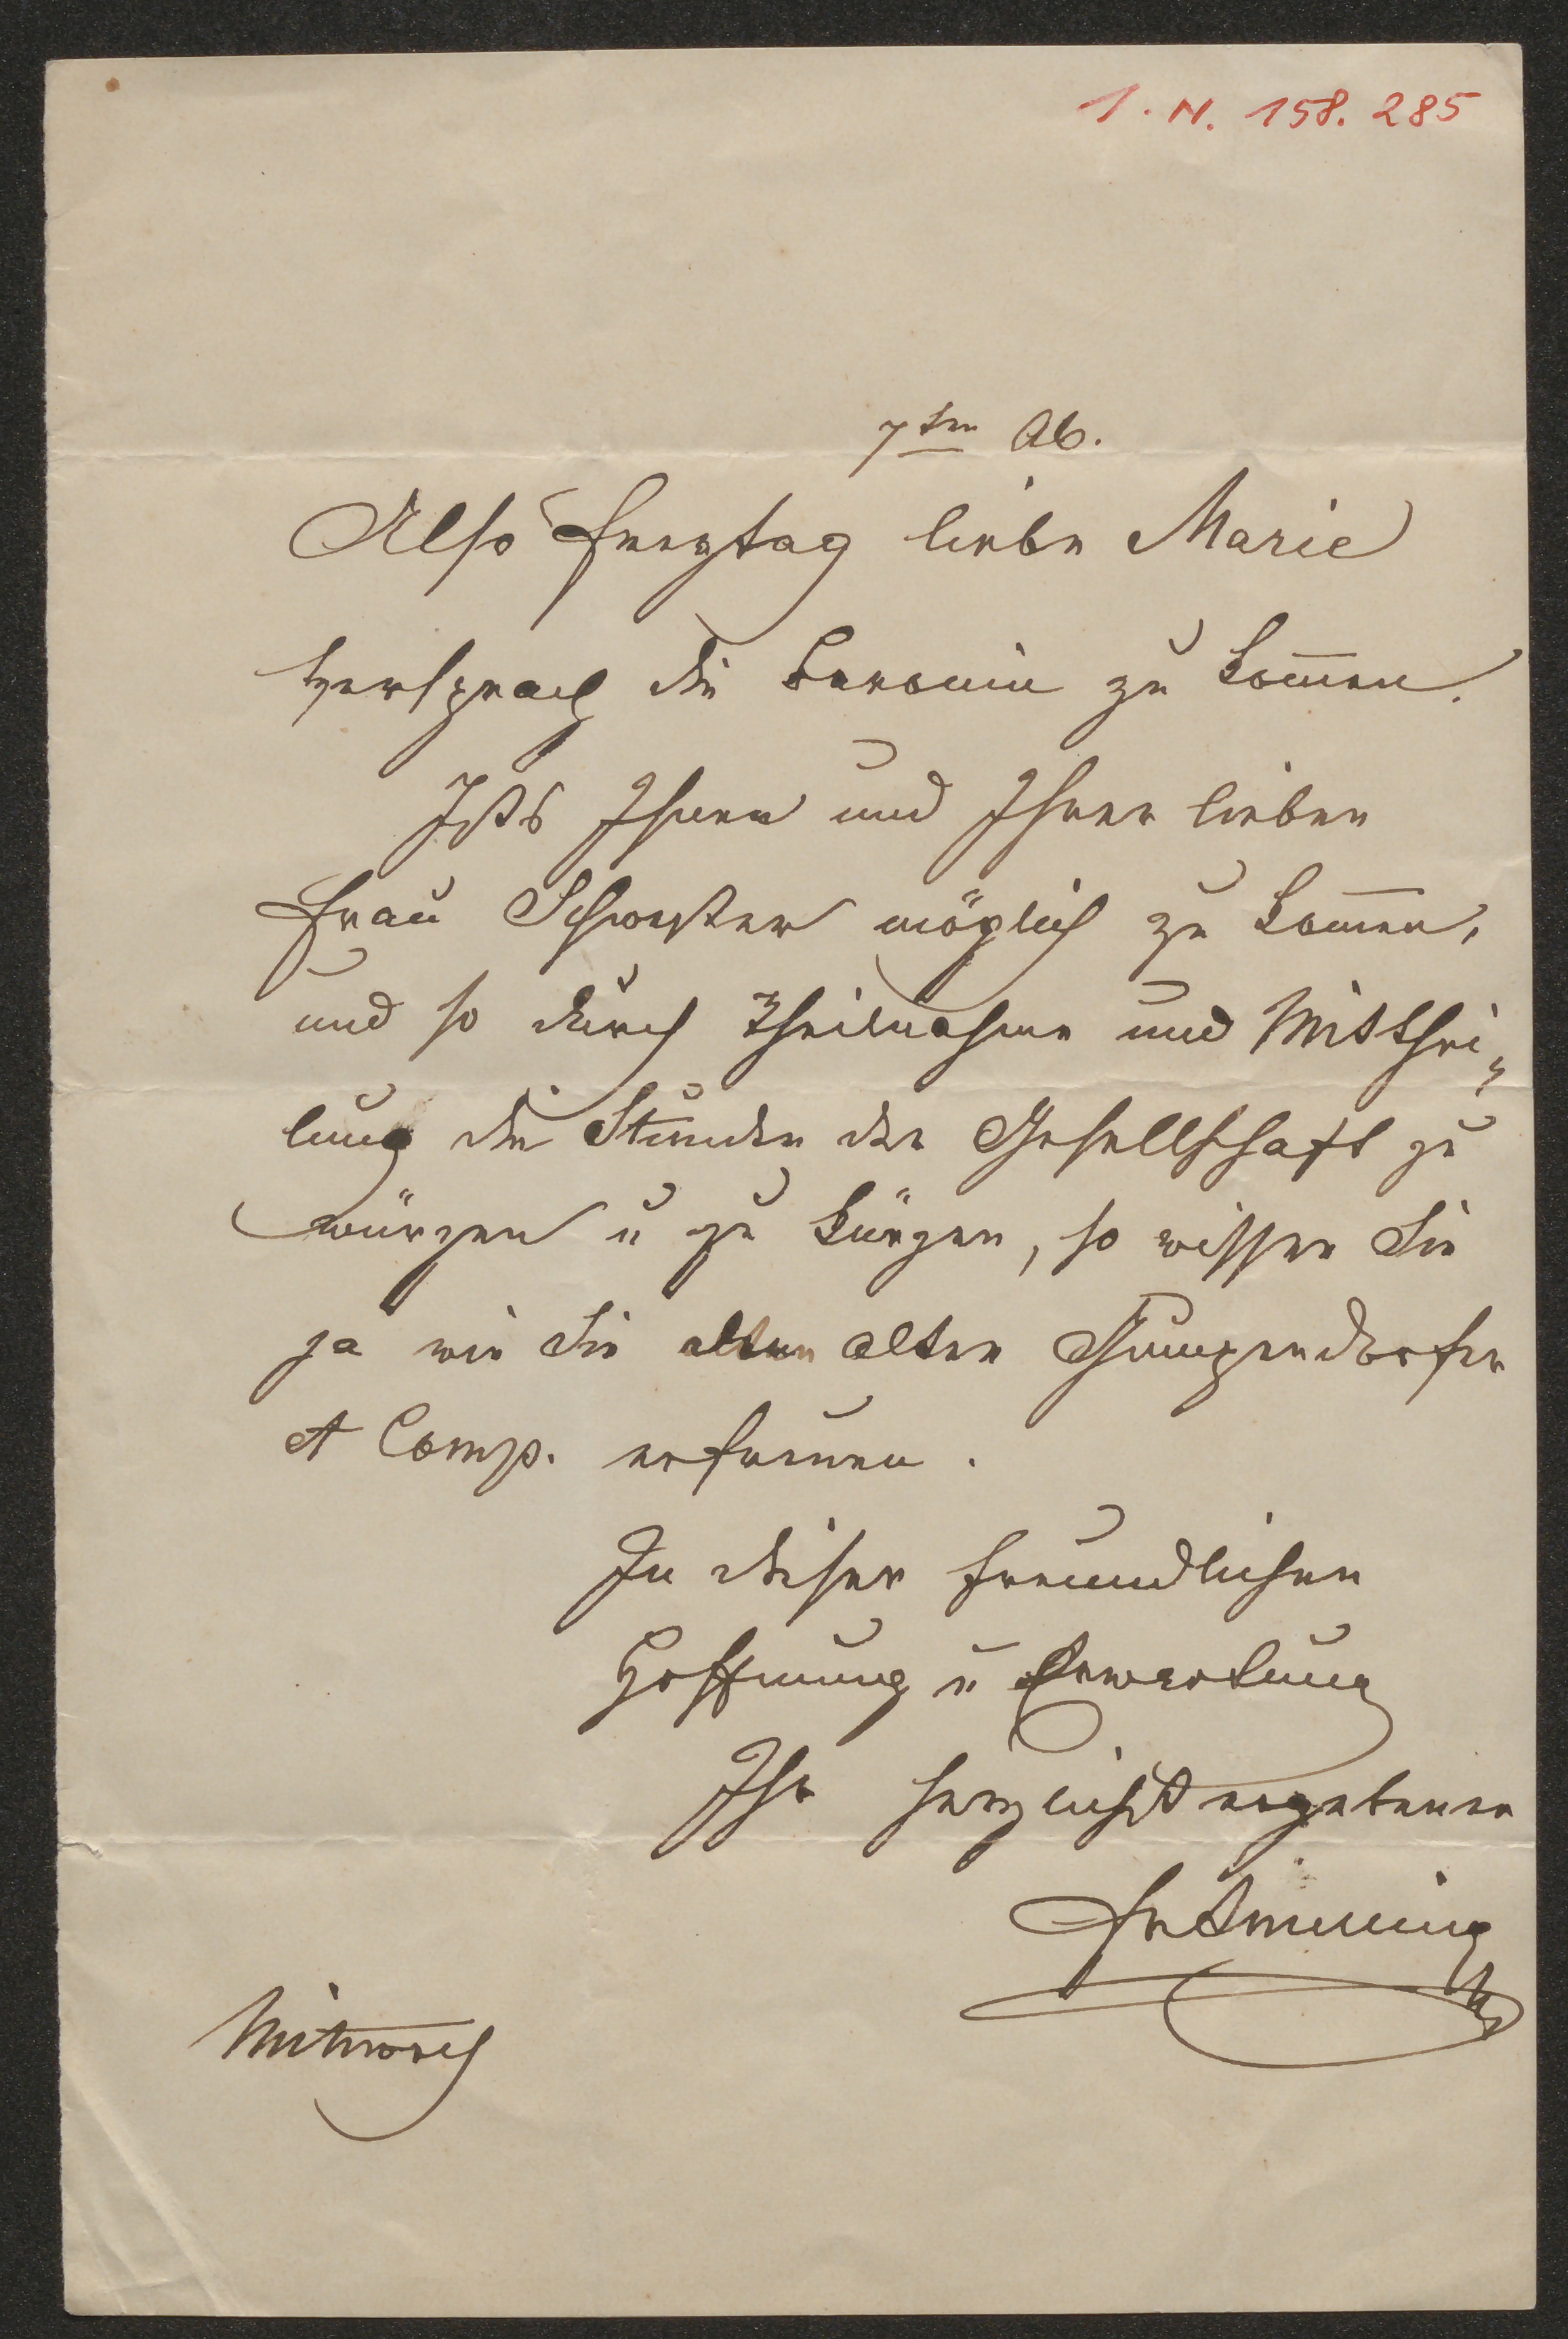 I. N. 158.285
7ten Ab.
Also Freytag liebe Marie
versprach die Baronin zu kom̅en.
Ists Ihnen und Ihrer lieben
Frau Schwester möglich zu kom̅en,
und so durch Theilnahme und Mitthei-
lung die Stunden der Gesellschaft zu
würzen u zu kürzen, so wissen Sie
ja wie Sie alten Gumpendorfer
et Comp. erfreuen.
In dieser freundlichen
Hoffnung u Erwartung
Ihr herzlichst ergebener
Mittwoch